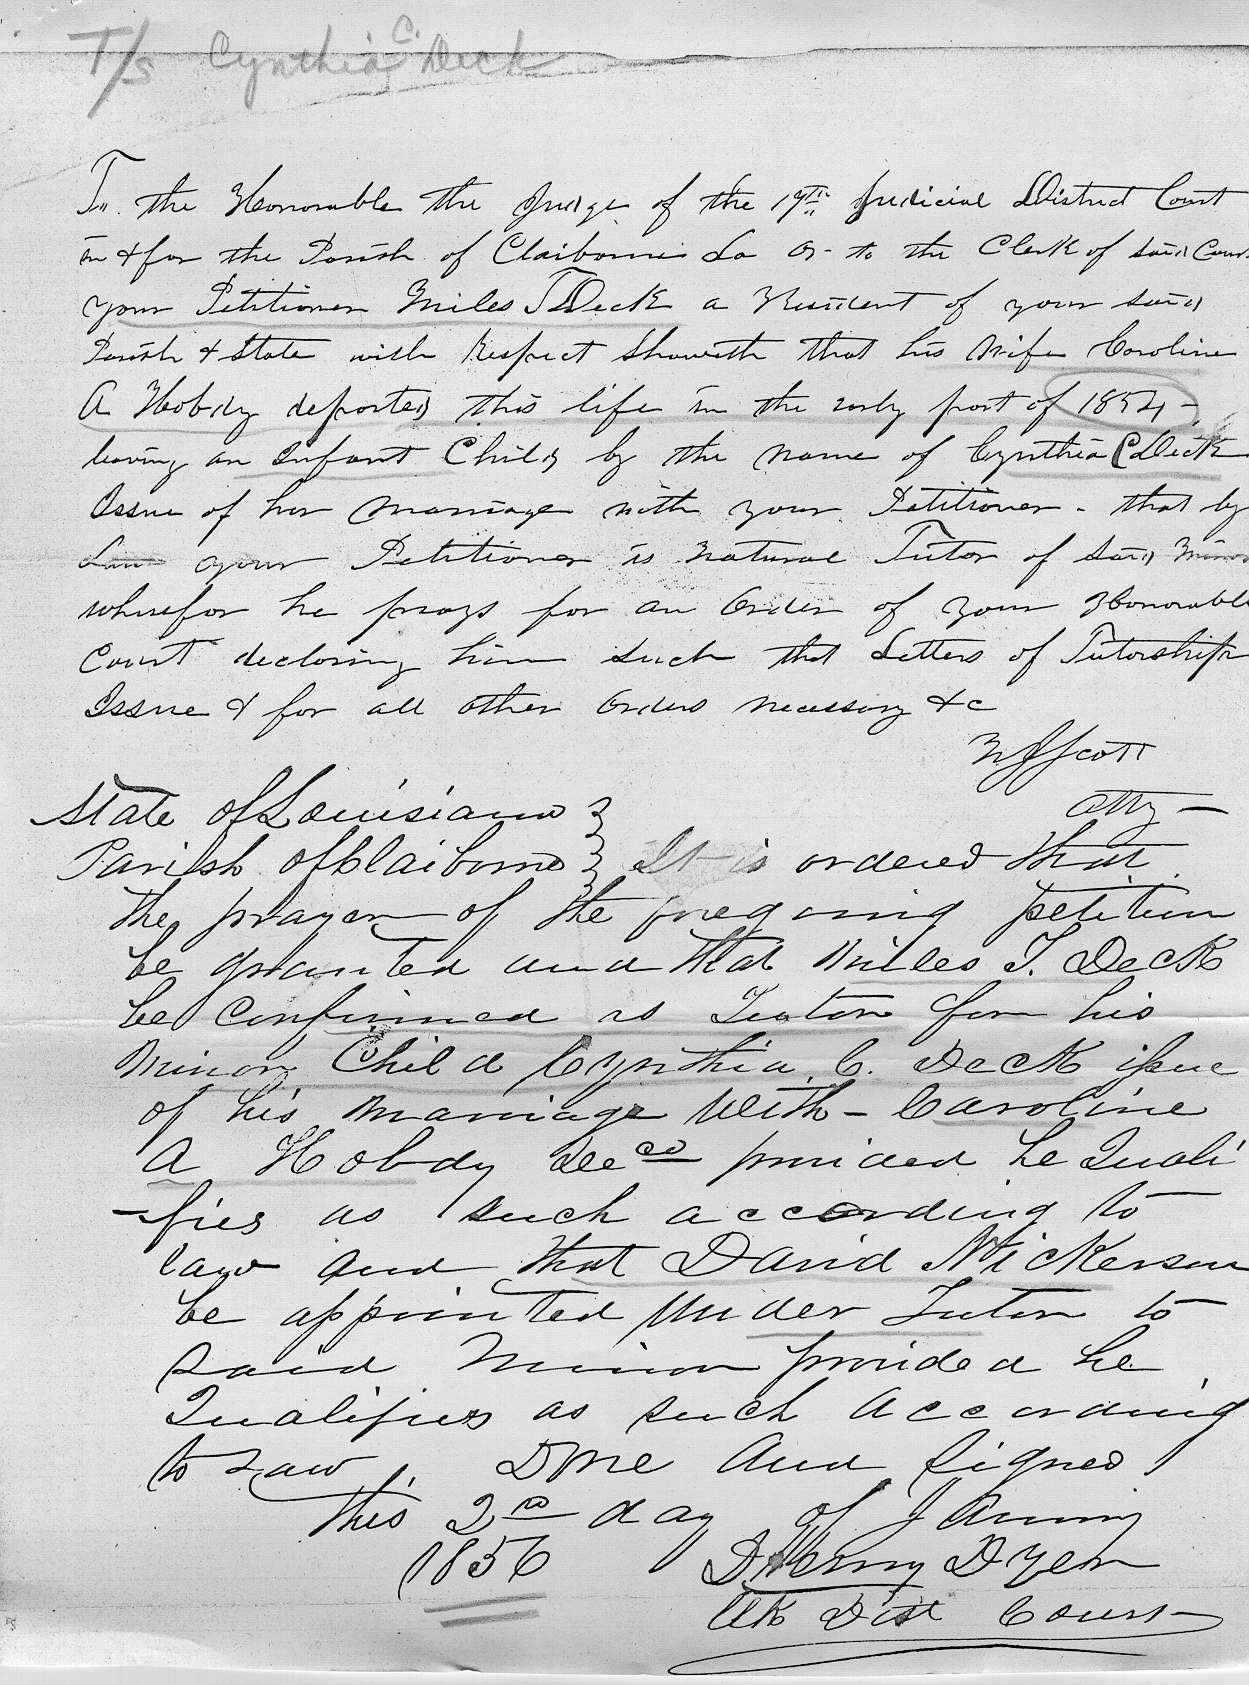 T/S Cynthia C. Deck
To the Honorable the Judge of the 17th Judicial District Court
in & for the Parish of Claiborne La or to the Clerk of said Court
your Petitioner Miles T Deck a Resident of your said
Parish & State with Respect Showeth that his wife Caroline
A Hobdy departed this life in the early part of 1854
leaving an Infant Child by the name of Cynthia C Deck
Issue of her marriage with your Petitioner - that by
Law your Petitioner is natural Tutor of said Minor
wherefor he prays for an Order of your Honorable
Court declaring him such that Letters of Tutorship
Issue & for all other Orders necessary &c
Scott
Atty -
State of Louisiana
Parish of Claiborne It is ordered that
the prayer of the foregoing petition
be granted and that Miles T. Deck
be confirmed as Tutor for his
minor Child Cynthia C. Deck issue
of his marriage With - Caroline
A Hobdy Decd provided he Quali
-fies as such according to
law and that David Nickerson
be appointed Under Tutor to
said Minor provided he
Qualifies as such According
to Law. Done And Signed
this 2nd day of
1856 Henry Dyer
Clk Dist Court